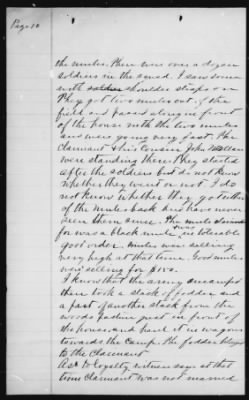 Page 10
the mules. There was over a dozen
soldiers in the squad. I saw some
with soldier shoulder straps on
They got two mules out of the
field and passed along in front
of the house with the two mules
and were going very fast. The
Claimant & his cousin John
were standing there. They started
after the soldiers but do not know
whether they went on not I do
not know whether they got either
of the mules back and have never
seen them since. The mule
for was a black mule was in tolerable
good order. mules were selling
very high at that time. Good mules
were selling for $150.
I know that the army encamped
there took a stack of fodder and
a part of another stack from the
woods pasture just in front of
the house and haul it in wagons
towards the Camp. The fodder
to the Claimant
As to loyalty witness says at that
time Claimant was not married